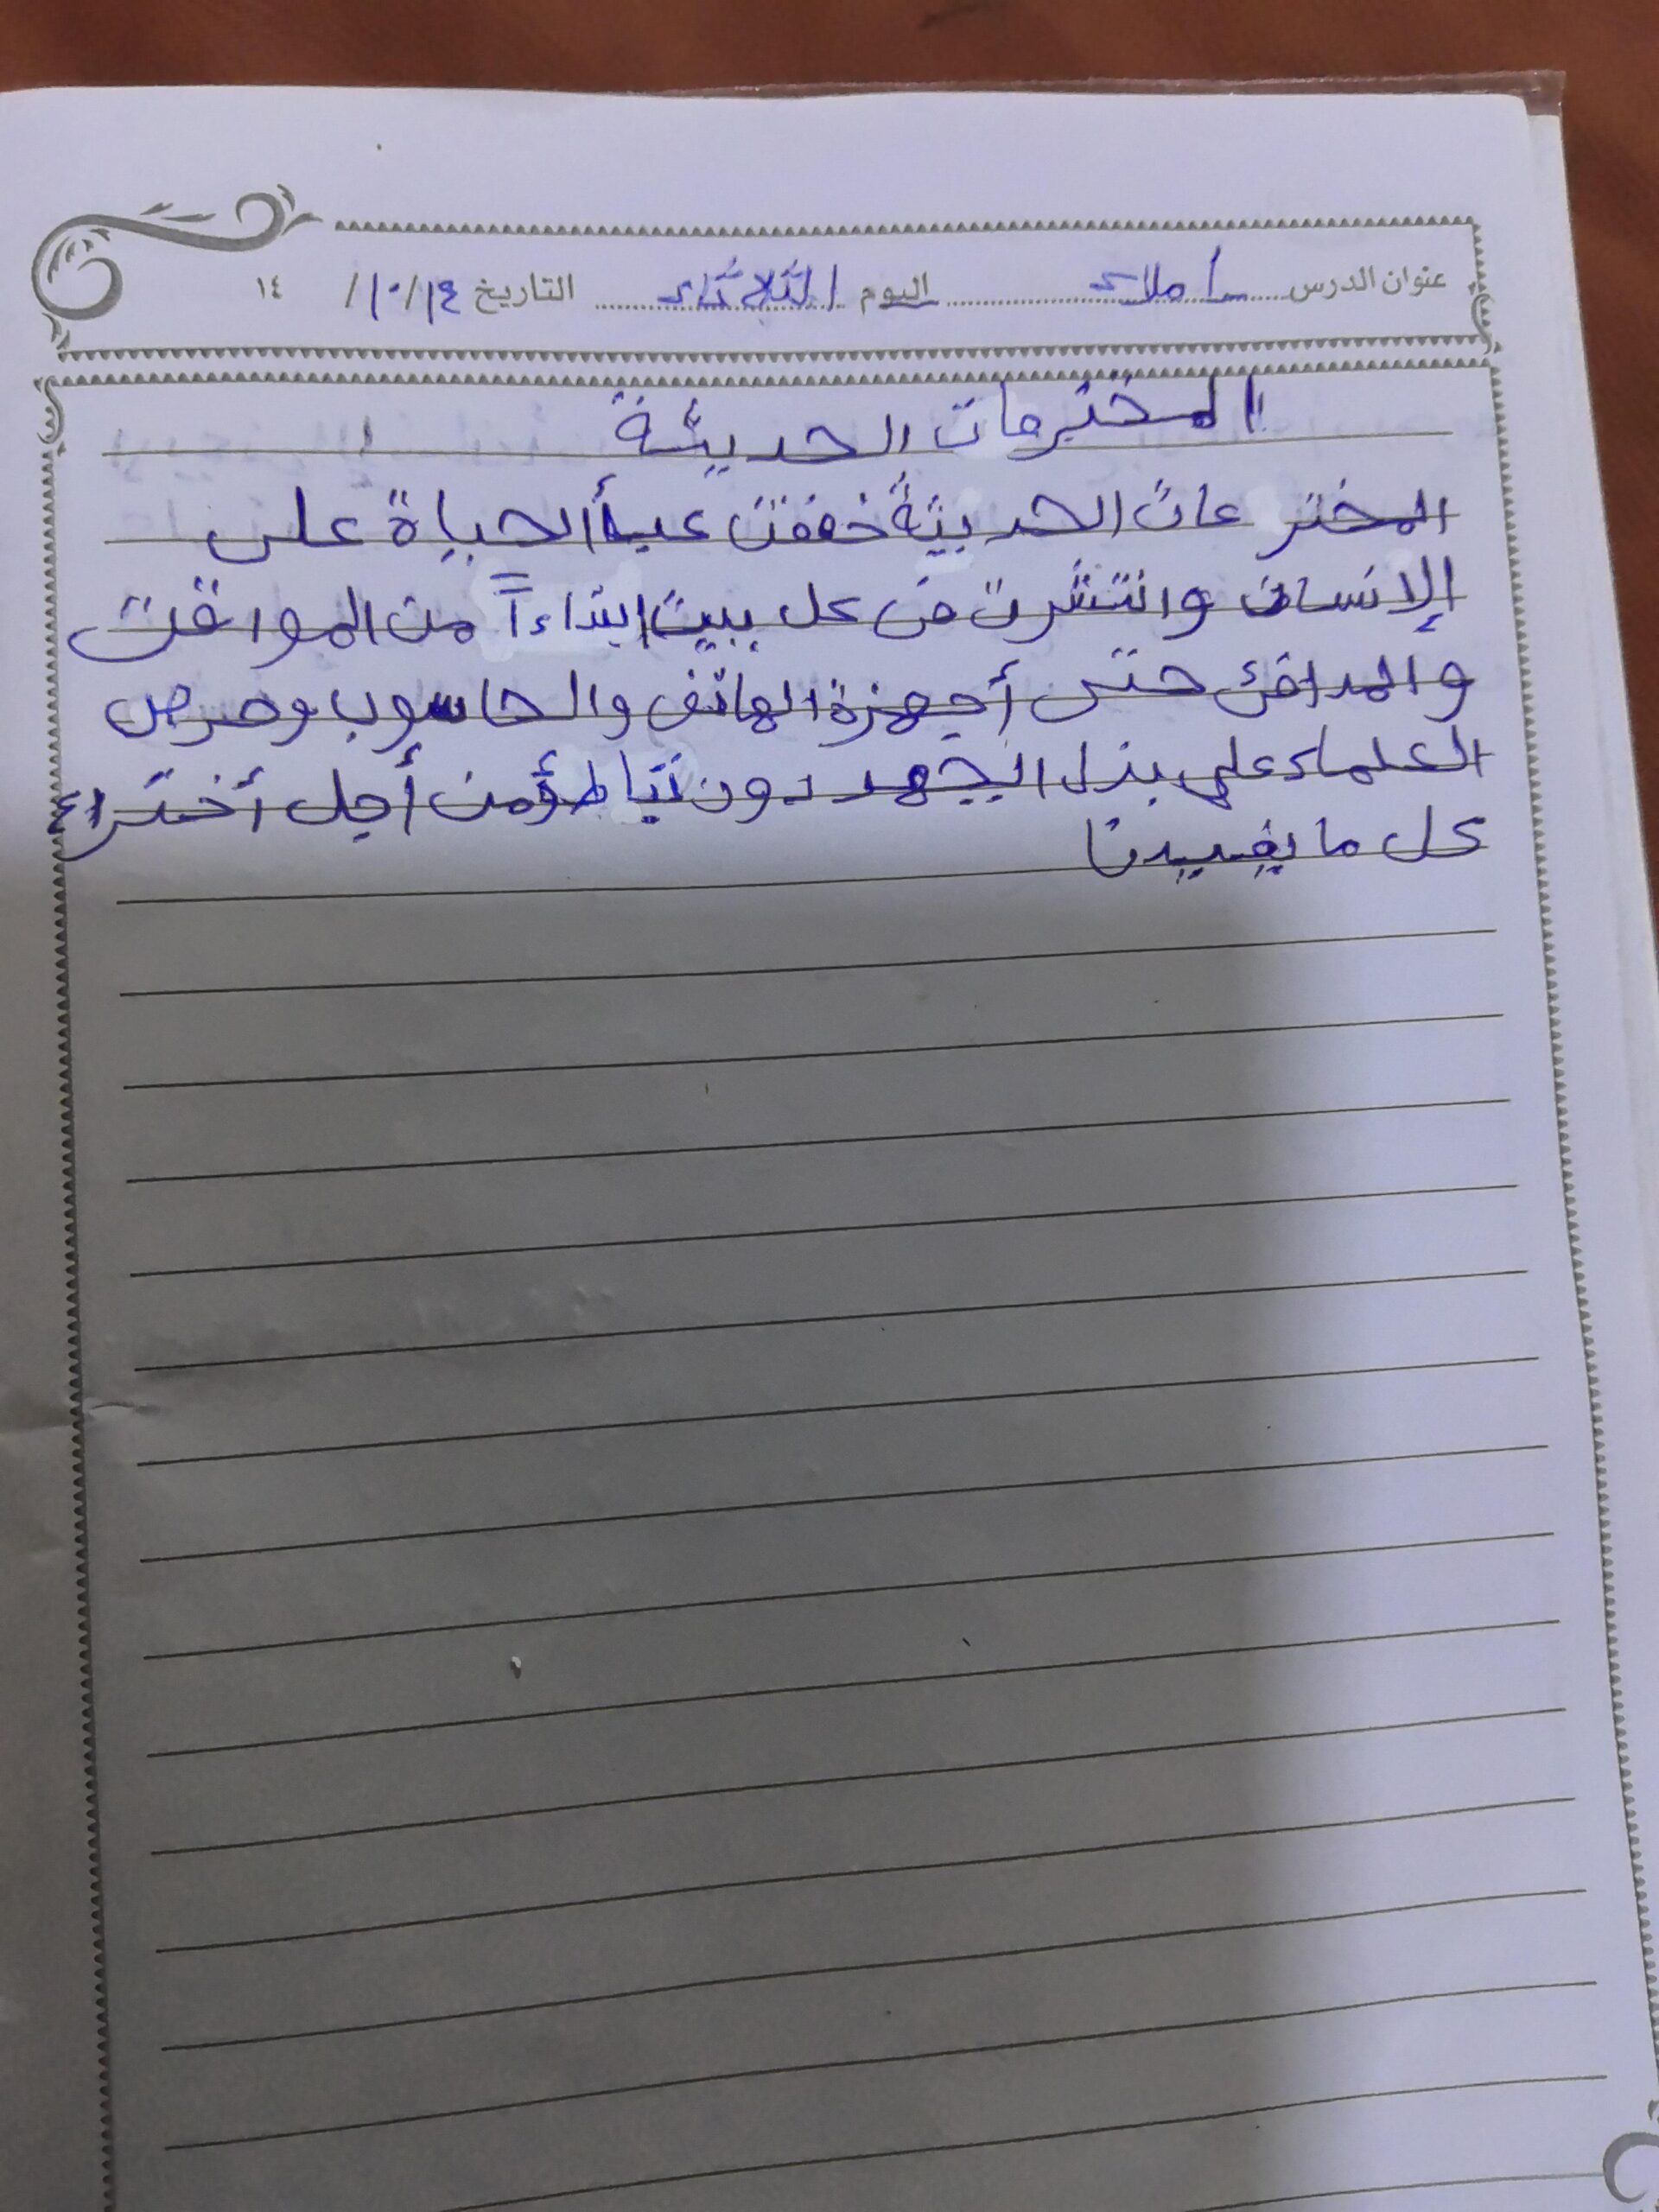 عنوان الدرس املاء اليوم الثلاثاء التاريخ ١٤/١٠/ ١٤
المخترعات الحديثة
المخترعات الحديثة خففت عبأ الحياة على
الإنسان وانتشرت في كل بيت ابتداءاً من المواقت
والمدافئ حتى أجهزة الهاتف والحاسوب وحرص
العلماء على بذل الجهد دون تباطؤ من أجل أختراع
كل ما يفيدنا